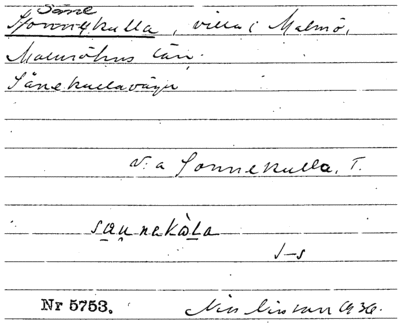 Såne
Sonnekulla, villa i Malmö,
Malmöhus län.
Sånekullavägen
v. a Sonnekulla, T.
saunekala
s-s
Nr 5753.
1936.